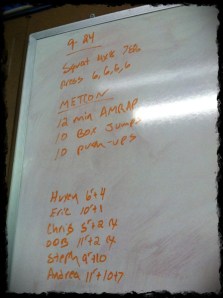 9-24
Squat 4x6 75%
Press 6,6,6,6
METCON
12 min AMRAP
10 Box Jumps
10 push-ups
Eric 10+1
Chris 8+2 Rx
DOB 11+2 Rx
Steph 9+10
Andrea 11+10+7